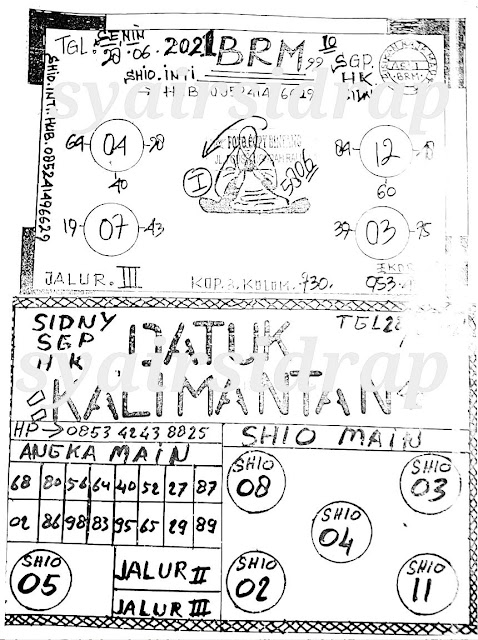 SENIN
TGL: 28.06.2021 BRM.99 10
SGP.
HK.
SHIO.INTI
SHIO.INTI.HUB.085241496629
64 04 98
40
84 12
60
I
5306
19 07 43
37 03 95
JALUR.III
KOP.3.KOLOM.730.
953
syairsidrap
SIDNY
SGP
HK
TGL28
DATUK
KALIMANTAN
syairsidrap
HP→0853 4243 8825
ANGKA MAIN
68 80 56 64 40 52 27 87
02 86 98 83 95 65 29 89
SHIO
05
JALUR II
JALUR III
SHIO MAIN
SHIO
08
SHIO
03
SHIO
04
SHIO
02
SHIO
11